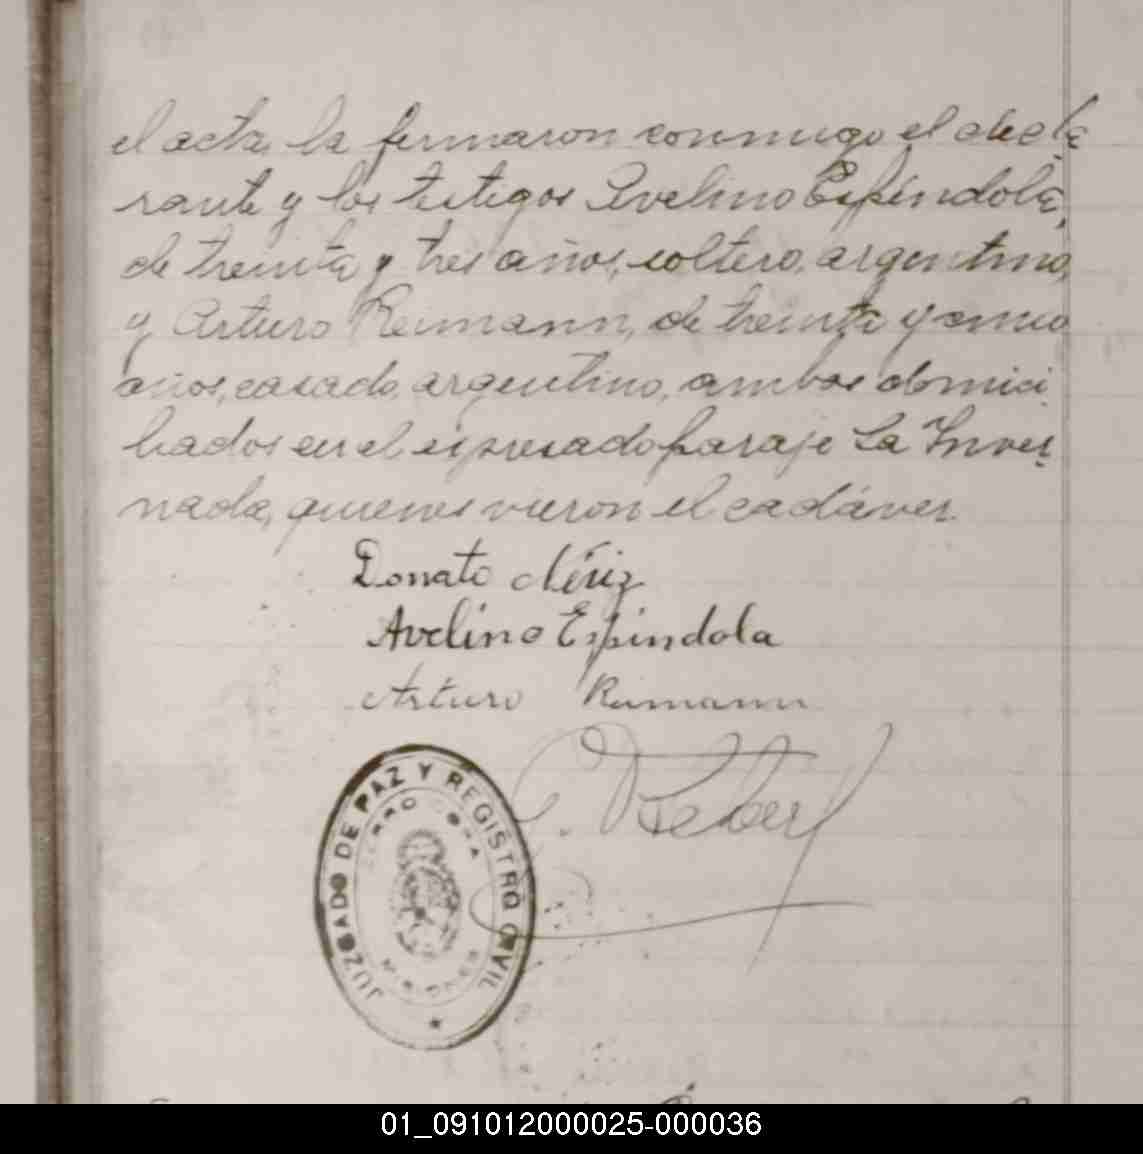 el acta, la firmaron conmigo el decla-
rante y los testigos Avelino Espíndola,
de treinta y tres años, soltero, argentino,
y Arturo Reimann, de treinta y cinco
años, casado, argentino, ambos domici-
liados en el expresado paraje La Inver-
nada, quienes vieron el cadáver.
Donato Nériz
Avelino Espindola
Arturo Reimann
JUZGADO DE PAZ Y REGISTRO CIVIL
CERRO CORA
MISIONES
01_091012000025-000036